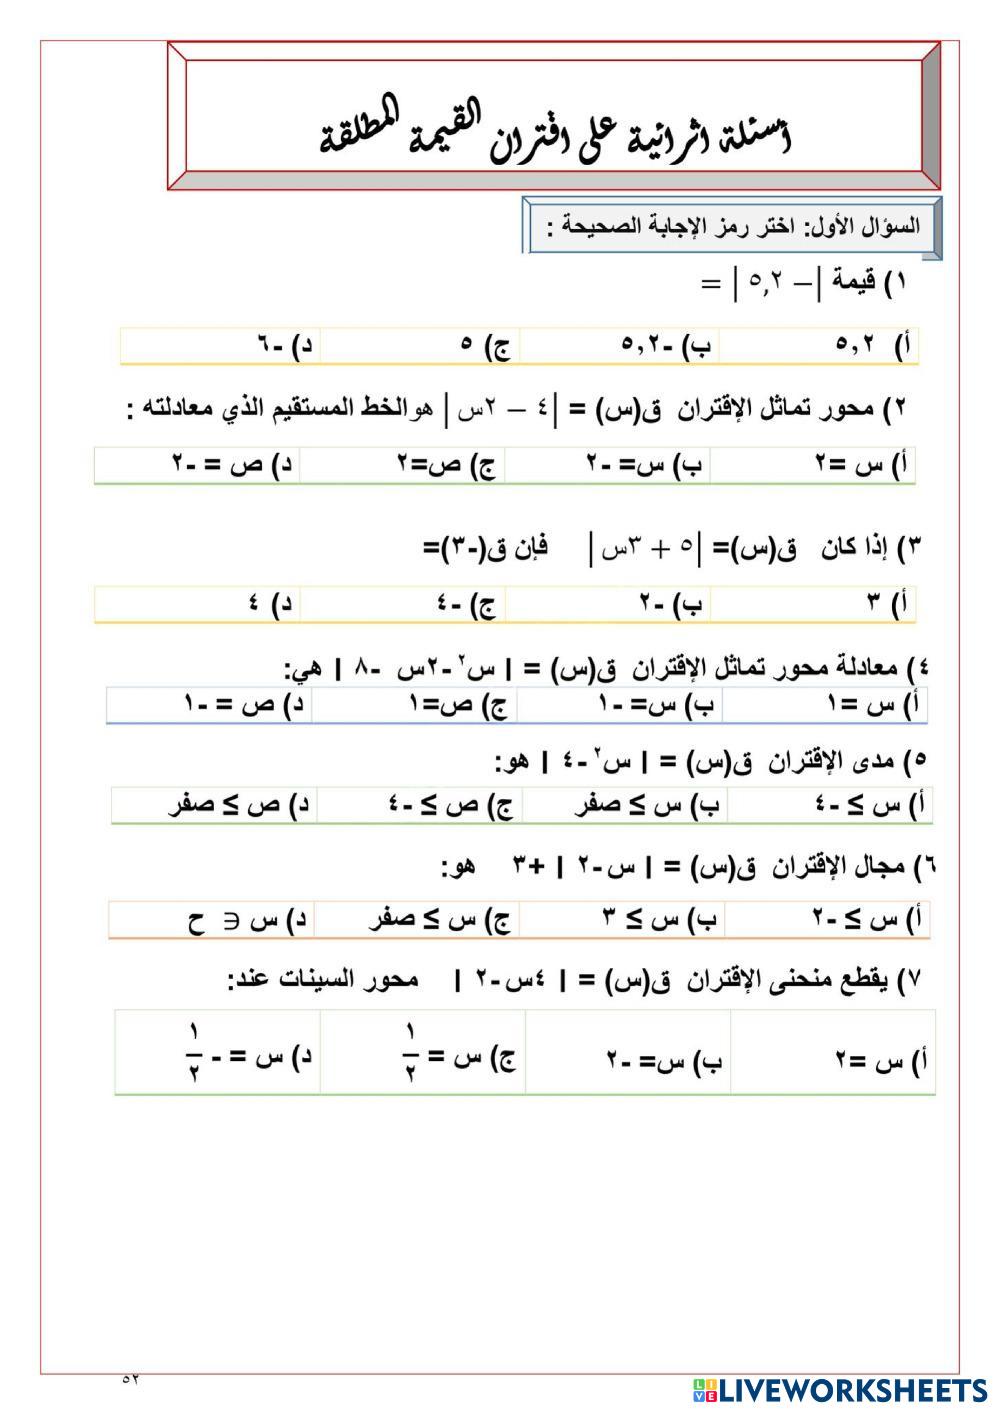 أسئلة اثرائية على اقتران القيمة المطلقة
السؤال الأول: اختر رمز الإجابة الصحيحة :
١) قيمة |− ٥,٢ | =
أ) ٥,٢ ب) -٥,٢ ج) ٥ د) -٦
٢) محور تماثل الإقتران ق(س) = |٤ − ٢س | هو الخط المستقيم الذي معادلته :
أ) س =٢ ب) س= -٢ ج) ص=٢ د) ص = -٢
٣) إذا كان ق(س)= |٥ + ٣س | فإن ق(-٣)=
أ) ٣ ب) -٢ ج) -٤ د) ٤
٤) معادلة محور تماثل الإقتران ق(س) = | س٢ -٢س -٨ | هي:
أ) س =١ ب) س= -١ ج) ص=١ د) ص = -١
٥) مدى الإقتران ق(س) = | س٢ -٤ | هو:
أ) س ≥ -٤ ب) س ≥ صفر ج) ص ≥ -٤ د) ص ≥ صفر
٦) مجال الإقتران ق(س) = | س -٢ | +٣ هو:
أ) س ≥ -٢ ب) س ≥ ٣ ج) س ≥ صفر د) س ∈ ح
٧) يقطع منحنى الإقتران ق(س) = | ٤س -٢ | محور السينات عند:
أ) س =٢ ب) س= -٢ ج) س = ١/٢ د) س = - ١/٢
٥٢
LIVE LIVEWORKSHEETS